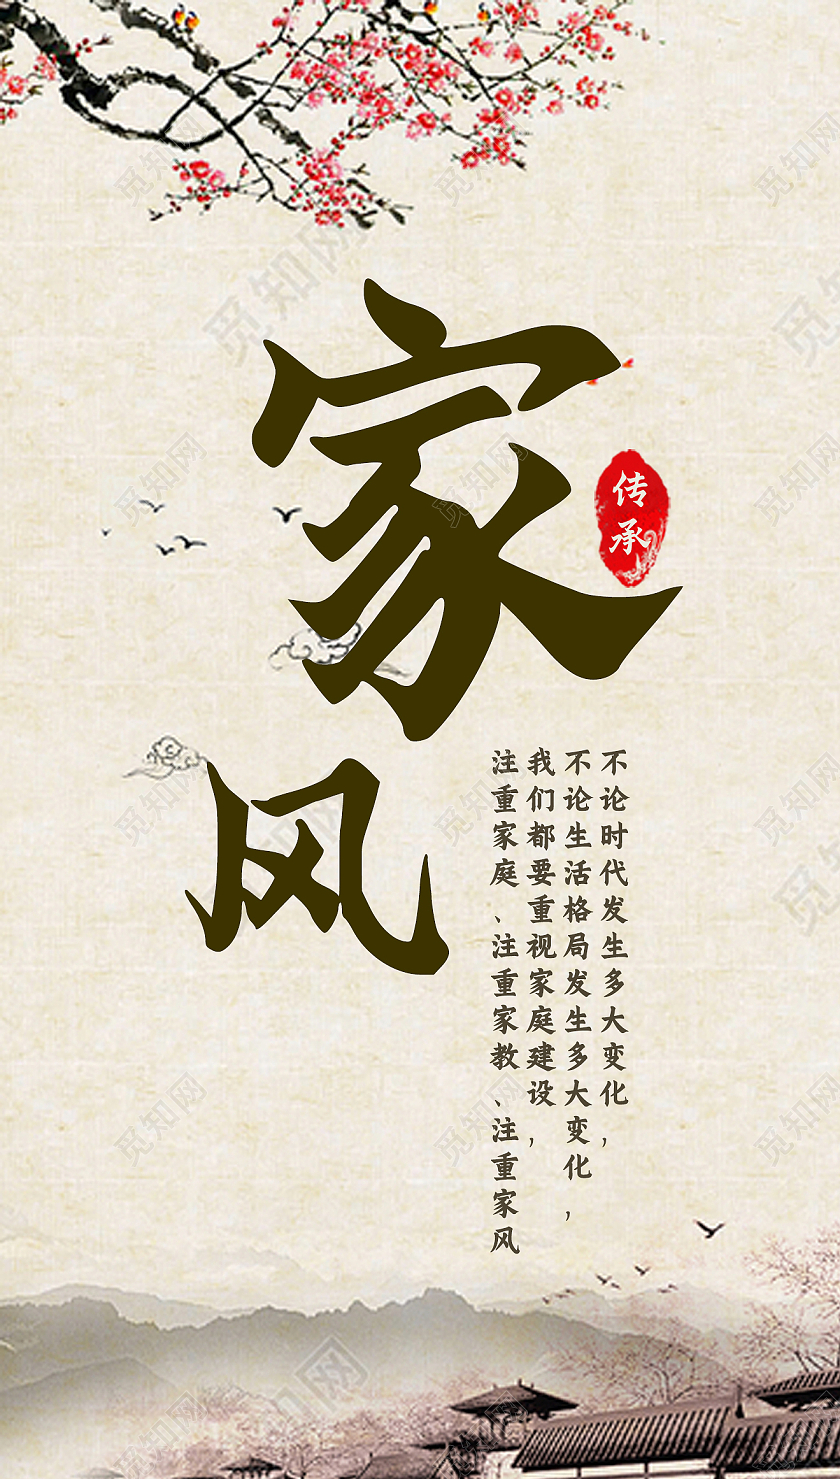 家风
传承
不论时代发生多大变化，
不论生活格局发生多大变化，
我们都要重视家庭建设，
注重家庭、注重家教、注重家风
觅知网